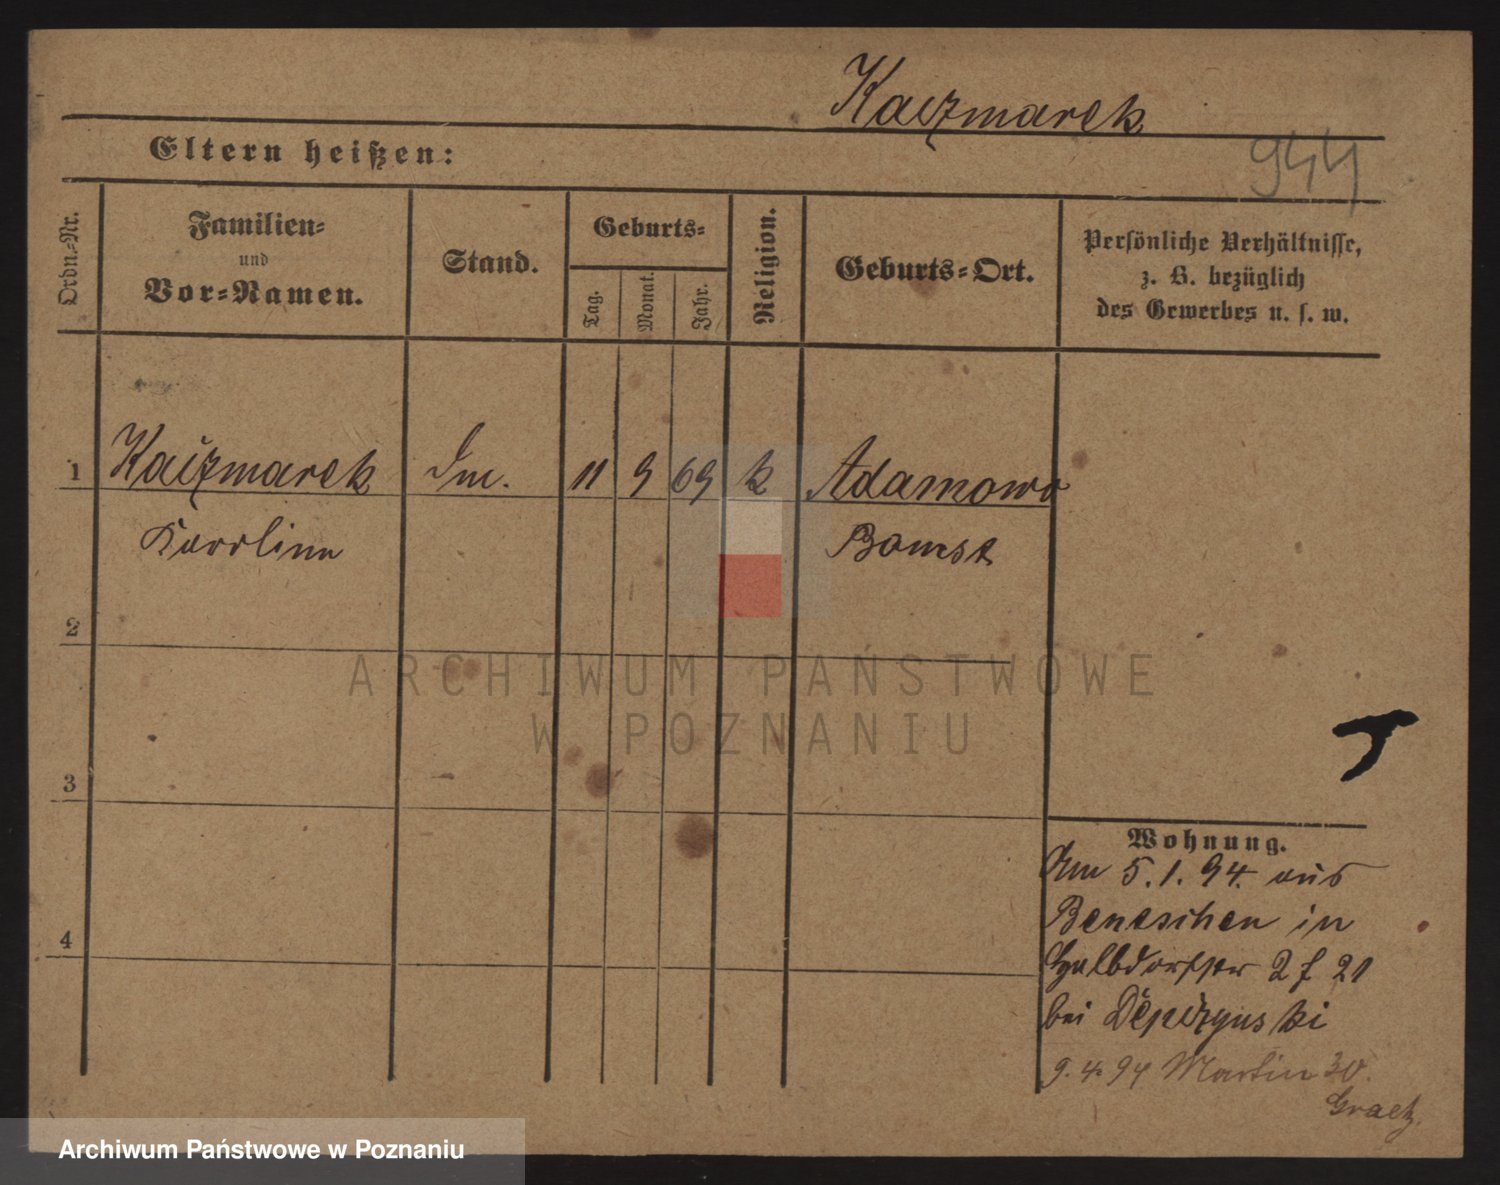 Kaczmarek
944
Eltern heißen:
Ordn.-Nr.
Familien-
und
Vor-Namen.
Stand.
Geburts-
Tag.
Monat.
Jahr.
Religion.
Geburts-Ort.
Persönliche Verhältnisse,
z. B. bezüglich
des Gewerbes u. s. w.
1 Kaczmarek 11 9 69 k Adamowo
Bomst
2
3
4
Wohnung.
Am 5.1.94. aus
Bentschen in
Halbdorfstr 21
bei
9.4.94 Martin 30.
Graetz.
ARCHIWUM PAŃSTWOWE
W POZNANIU
Archiwum Państwowe w Poznaniu